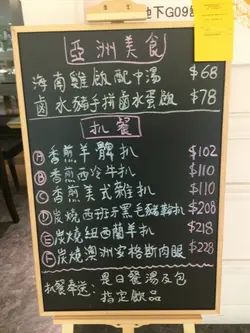 地下G09
亞洲美食
海南雞飯配中湯 $68
鹵水豬手拼鹵水蛋飯 $78
扒餐
A 香煎羊髀扒 $102
B 香煎西冷牛扒 $110
C 香煎美式雞扒 $110
D 炭燒西班牙黑毛豬鞍扒 $208
E 炭燒紐西蘭羊扒 $218
F 炭燒澳洲安格斯肉眼 $228
扒餐奉送: 是日餐湯及包
指定飲品